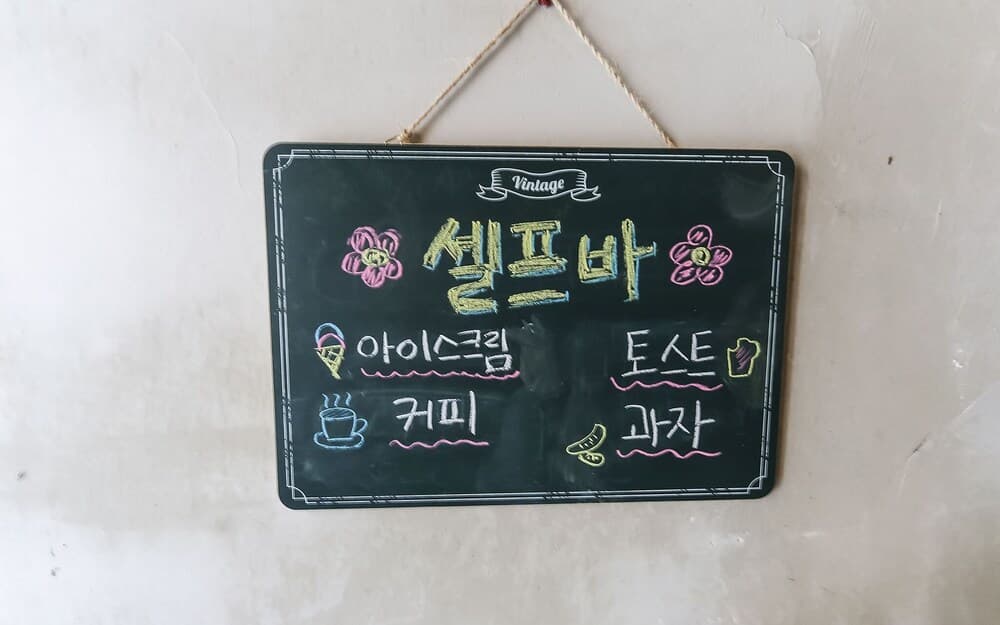 Vintage
셀프바
아이스크림 토스트
커피 과자